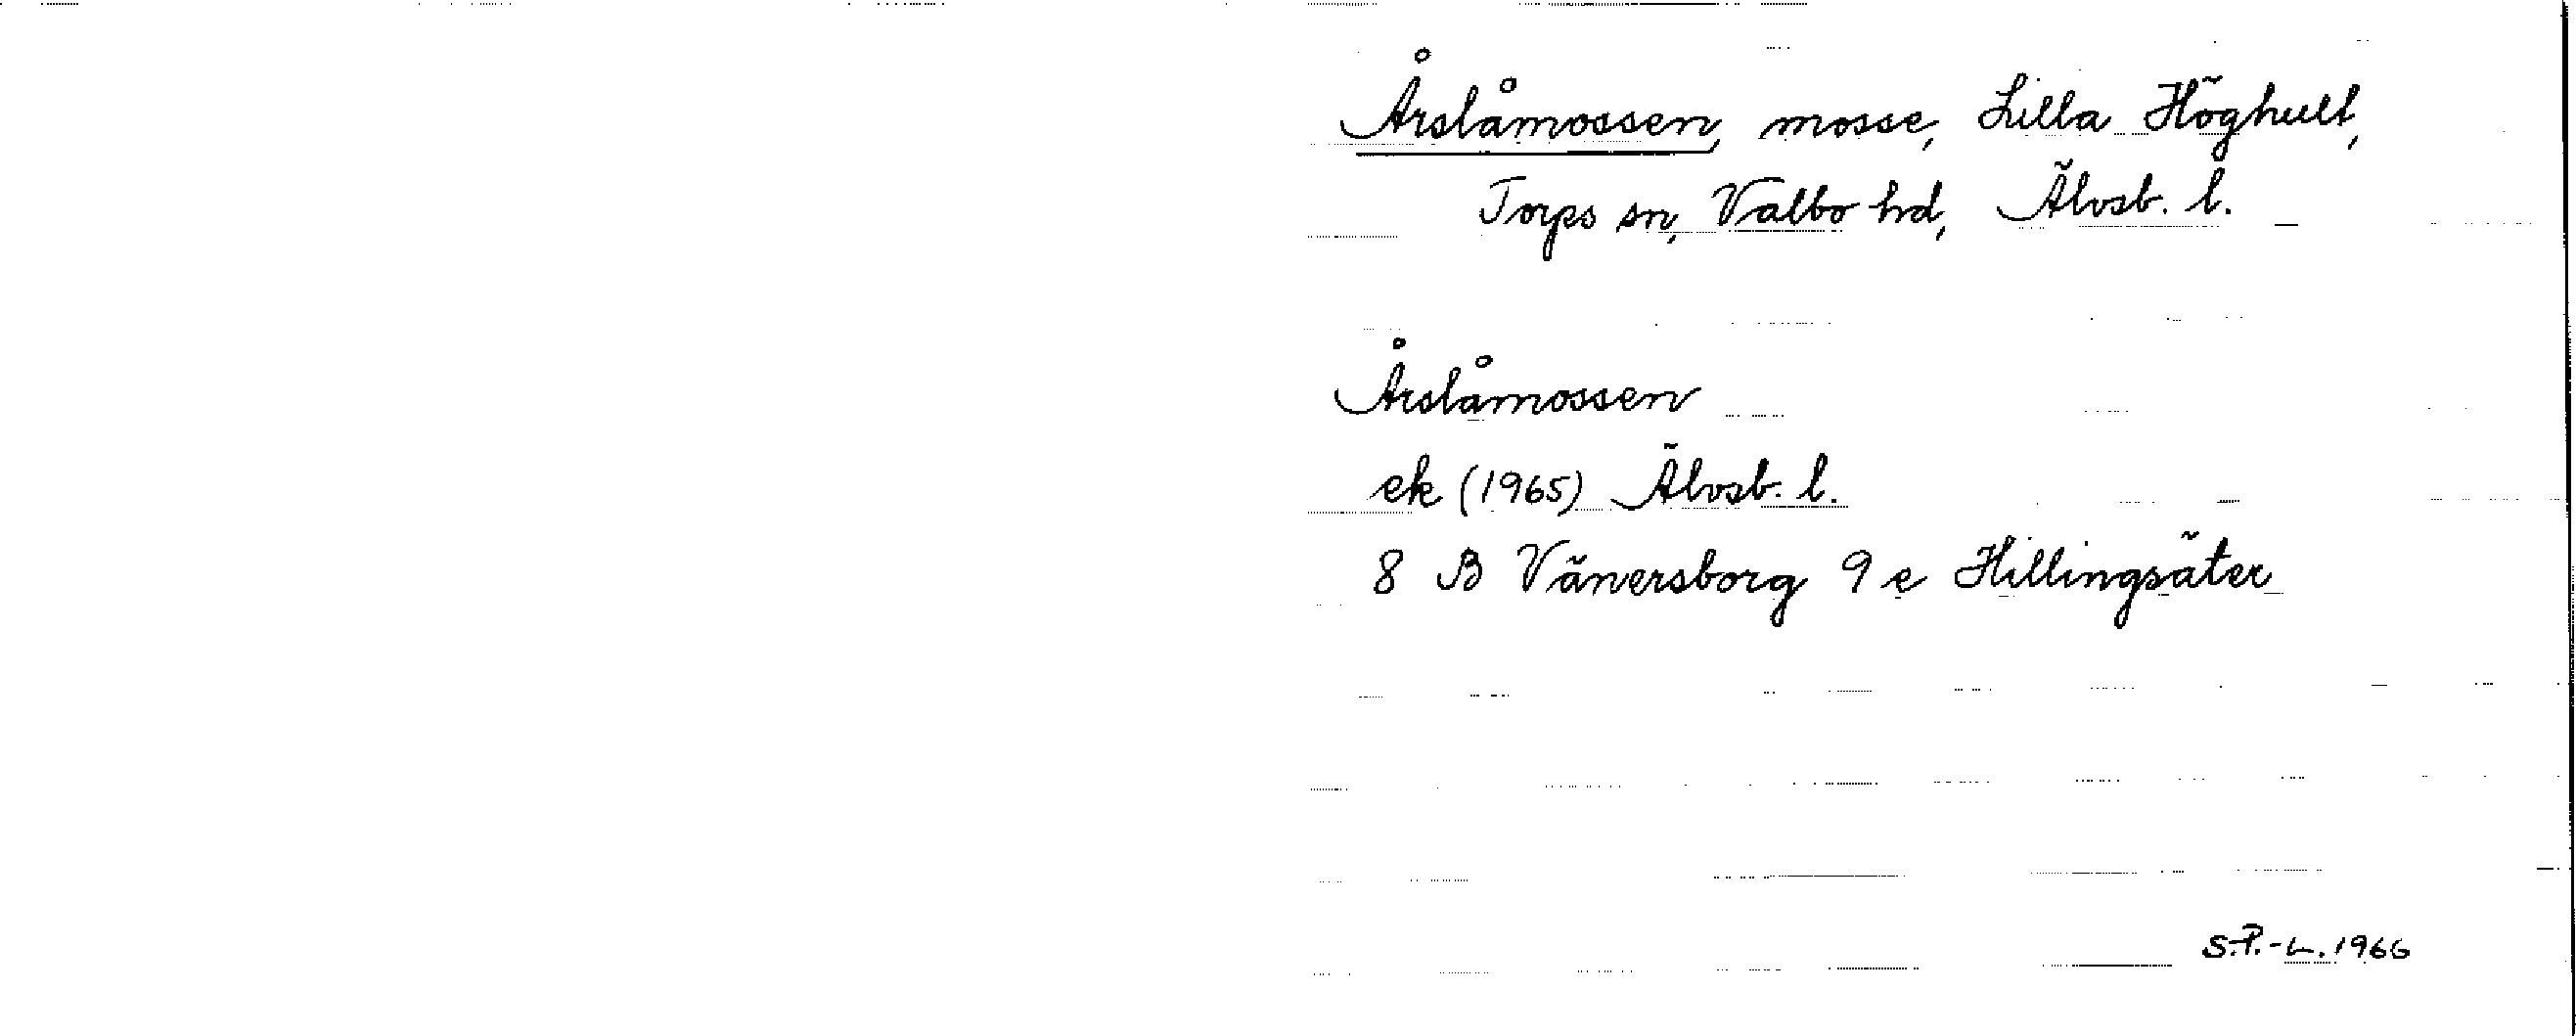 Årslåmossen, mosse, Lilla Höghult,
Torps sn, Valbo hd, Älvsb. l.
Årslåmossen
ek (1965) Älvsb. l.
8 B Vänersborg 9 e Hillingsäter
S.P.-L. 1966